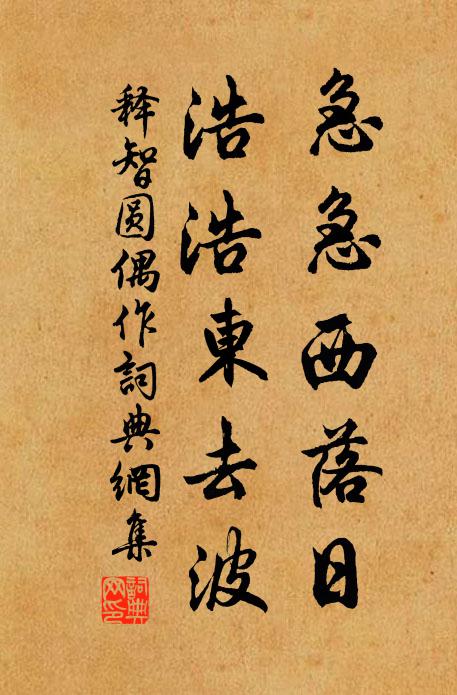 急急西落日
浩浩東去波
释智圆偶作詞典網集
詞典
网印